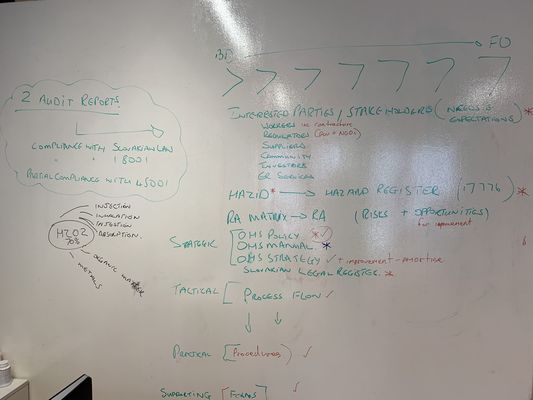 BD FO
2 AUDIT REPORTS
COMPLIANCE WITH SLOVAKIAN LAW
" " 18001
PARTIAL COMPLIANCE WITH 45001
INTERESTED PARTIES / STAKEHOLDERS (NEEDS & EXPECTATIONS) *
WORKERS inc contractors
REGULATORS (Gov + NGOs)
SUPPLIERS
COMMUNITY
INVESTORS
ER SERVICES
HAZID* → HAZARD REGISTER (17776) *
RA MATRIX → RA (RISKS + OPPORTUNITIES)
for improvement
INJECTION
INHALATION
INGESTION
ABSORPTION
H2O2
70%
ORGANIC
METALS
STRATEGIC
OHS POLICY * ✓
OHS MANUAL *
OHS STRATEGY ✓ + improvement
SLOVAKIAN LEGAL REGISTER *
TACTICAL [PROCESS FLOW ✓
PRACTICAL [Procedures) ✓
SUPPORTING [FORMS] ✓